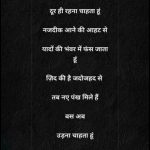 दूर ही रहना चाहता हूं
नजदीक आने की आहट से
यादों की भंवर में फंस जाता
हूं
ज़िद की है जदोजहद से
तब नए पंख मिले हैं
बस अब
उड़ना चाहता हूं